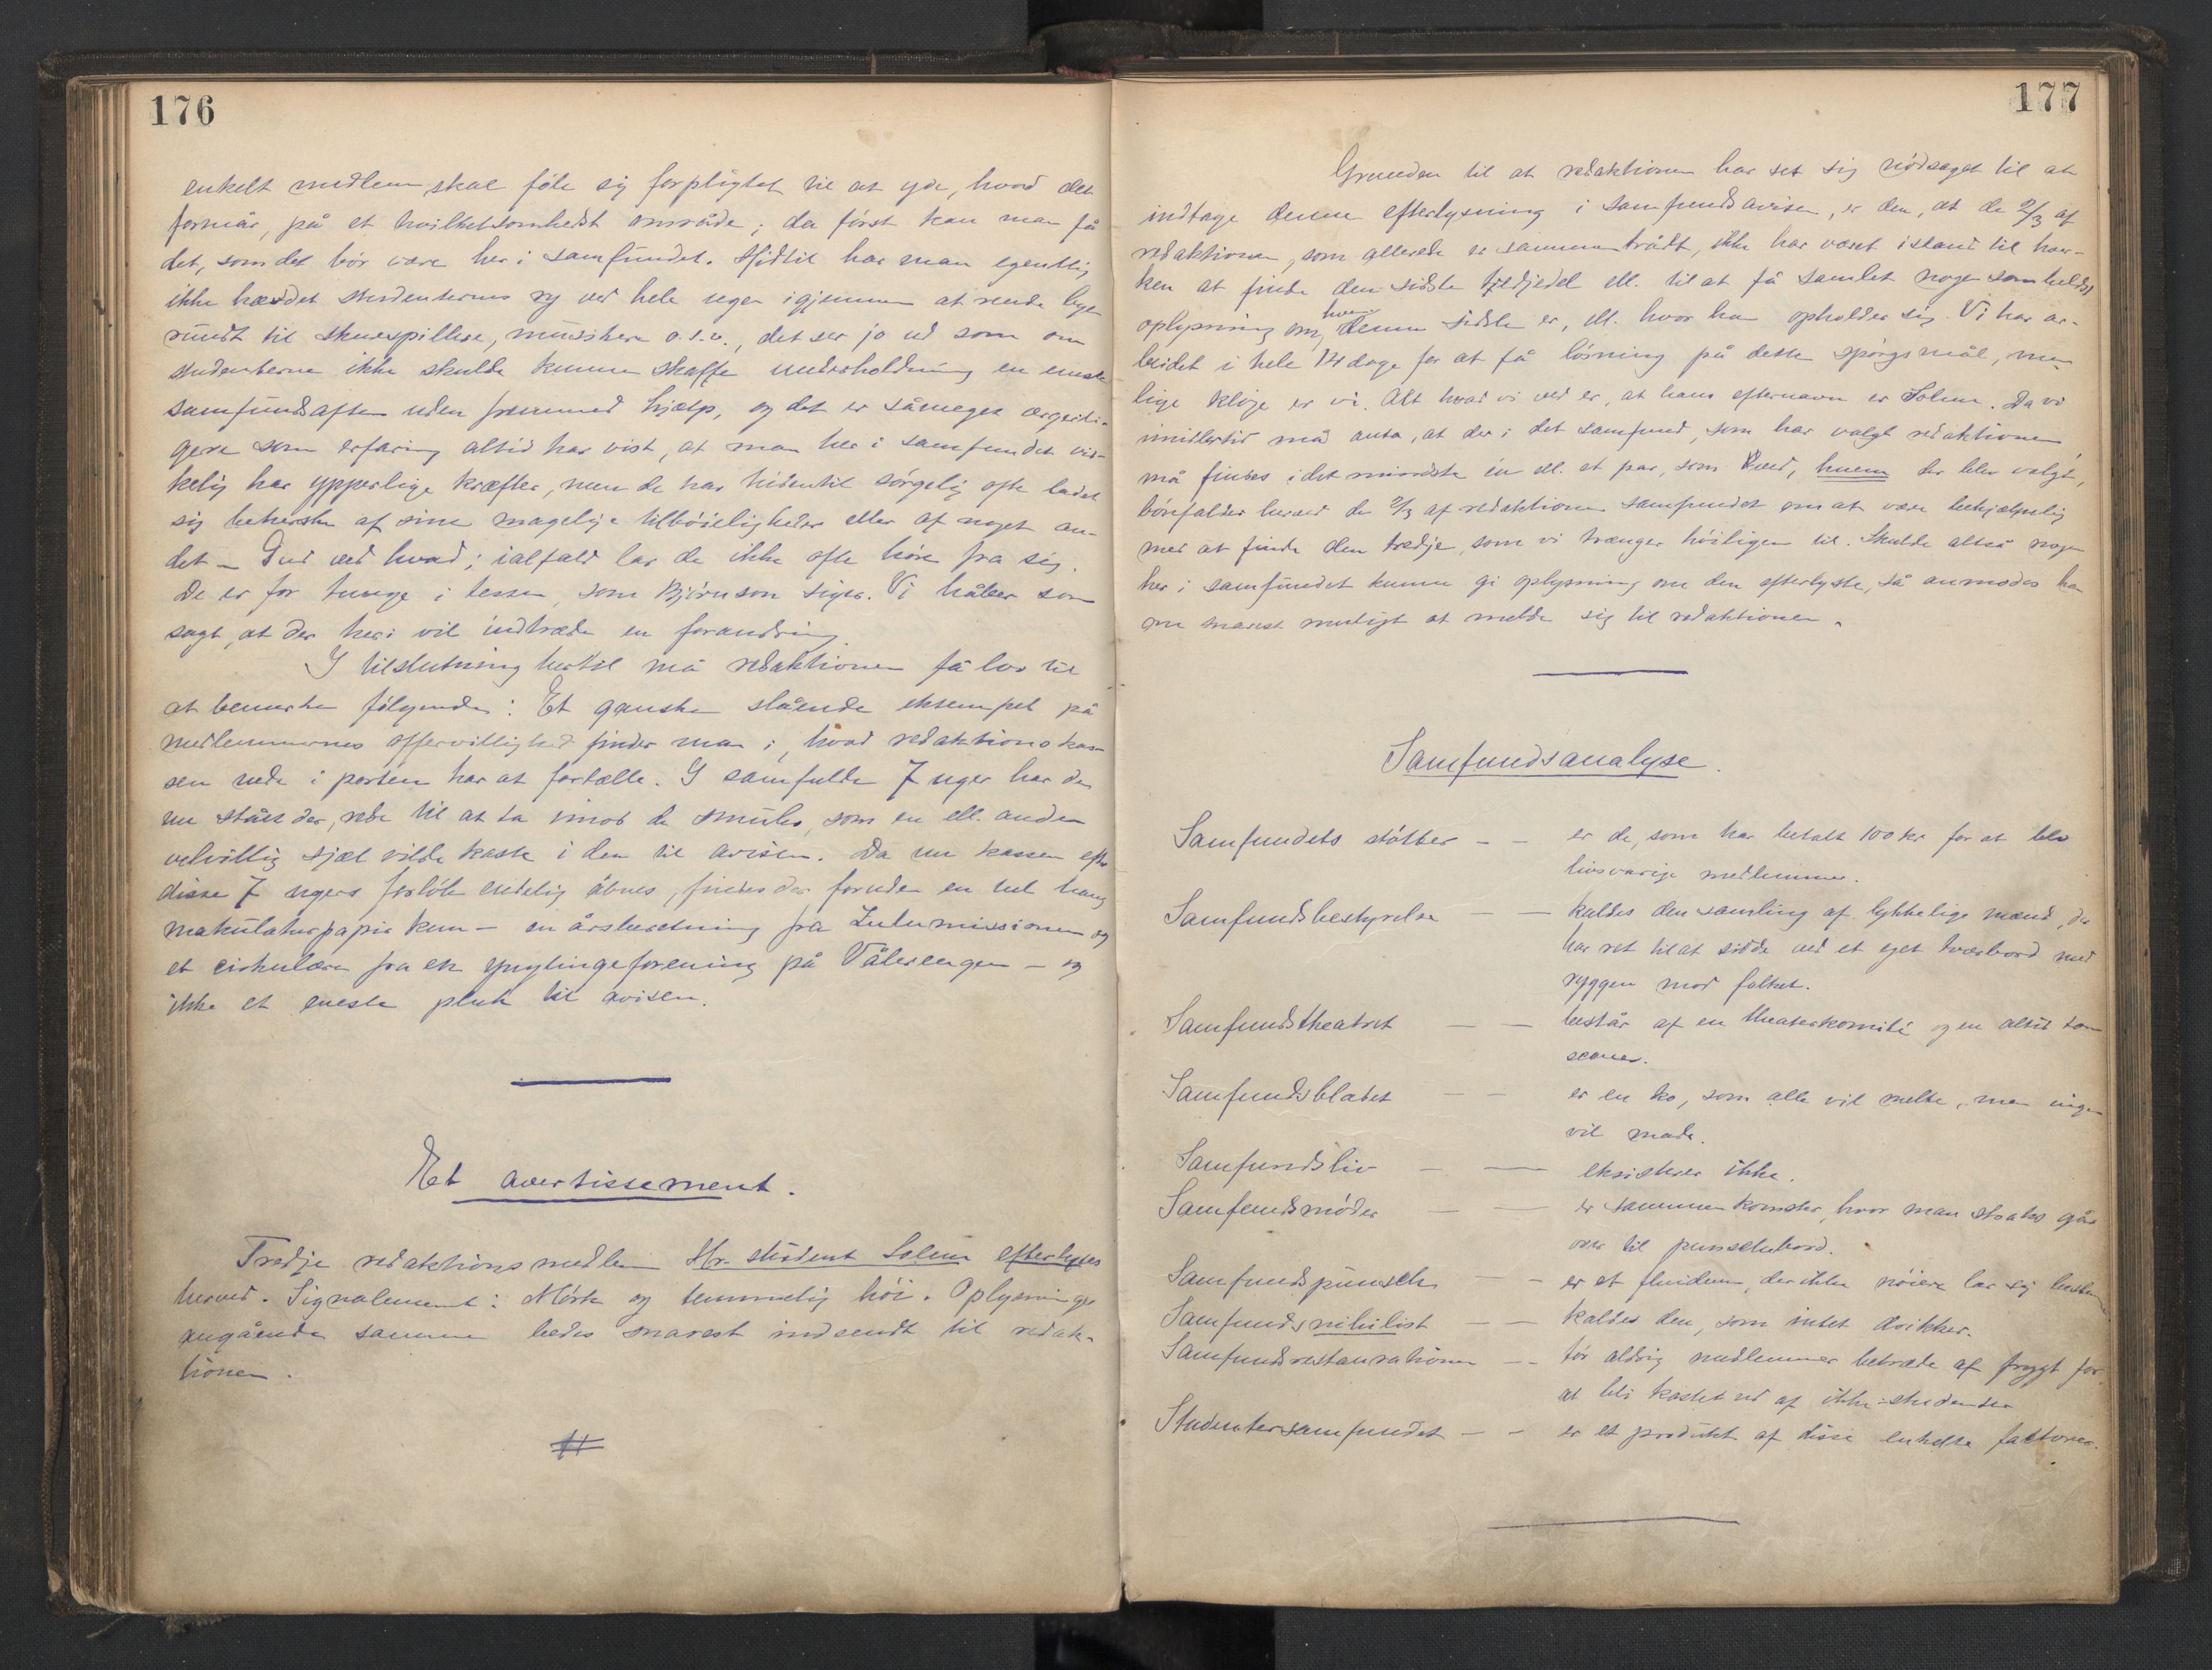 176
enkelt medlem skal föle sig forpligtet til at yde, hvad det
formår, på et hvilketsomhelst område; da först kan man få
det, som det bör være her i samfundet. Hidtil har man egentlig
ikke hævdet studenternes ry ved hele ugen igjennem at rende byen
rundt til skuespillere, musikere o.s.v., det ser jo ud som om
studenterne ikke skulde kunne skaffe underholdning en eneste
samfundsaften uden fremmed hjælp, og det er såmeget ærgerli-
gere som erfaring altid har vist, at man her i samfundet vir-
kelig har ypperlige kræfter, men de har hidentil sörgelig ofte ladet
sig beherske af sine magelige tilböieligheder eller af noget an-
det – Gud ved hvad; ialfald lar de ikke ofte höre fra sig.
De er for tunge i lessen, som Björnson siger. Vi håber som
sagt, at der heri vil indtræde en forandring.
I tilslutning hertil må redaktionen få lov til
at bemerke fölgende: Et ganske slående eksempel på
medlemmernes offervillighed finder man i, hvad redaktionskas-
sen nede i porten har at fortælle. I samfulde 7 uger har den
nu stået der, rede til at ta imod de smuler, som en ell. anden
velvillig sjæl vilde kaste i den til avisen. Da nu kassen efter
disse 7 ugers forlöb endelig åbnes, findes der foruden en hel haug
makulaturpapir kun – en årsberetning fra Zulumissionen og
et cirkulære fra en ynglingeforening på Vålerengen – og
ikke et eneste pluk til avisen.
Et avertissement.
Tredje redaktionsmedlem Hr. student Solem efterlyses
herved. Signalement: Mörk og temmelig höi. Oplysninger
angående samme bedes snarest indsendt til redak-
tionen.
177
Grunden til at redaktionen har set sig nödsaget til at
indtage denne efterlysning i samfundsavisen, er den, at de 2/3 af
redaktionen, som allerede er sammentrådt, ikke har været istand til hver-
ken at finde den sidste tredjedel ell. til at få samlet nogen somhelst
oplysning om, hvem denne sidste er, ell. hvor han opholder sig. Vi har ar-
beidet i hele 14 dage for at få lösning på dette spörgsmål, men
lige kloge er vi. Alt hvad vi ved er, at hans efternavn er Solem. Da vi
imidlertid må anta, at der i det samfund, som har valgt redaktionen
må findes i det mindste én ell. et par, som ved, hvem der blev valgt,
bönfalder herved de 2/3 af redaktionen samfundet om at være behjælpelig
med at finde den tredje, som vi trænger höiligen til. Skulde altså nogen
her i samfundet kunne gi oplysning om den efterlyste, så anmodes han
om snarest muligt at melde sig til redaktionen.
Samfundsanalyse.
Samfundets stötter – – er de, som har betalt 100 kr for at bli
livsvarige medlemmer.
Samfundsbestyrelse – – kaldes den samling af lykkelige mænd, der
har ret til at sidde ved et eget tværbord med
ryggen mod folket.
Samfundstheatret – – består af en theaterkomité og en altid tom
scene.
Samfundsbladet – – er en ko, som alle vil melke, men ingen
vil made.
Samfundsliv – – eksisterer ikke.
Samfundsmöder – – er sammenkomster, hvor man straks går
over til punschebord.
Samfundspunsch – – er et fluidum, der ikke nöiere lar sig bestemme
Samfundsnihilist – – kaldes den, som intet drikker.
Samfundsrestaurationen – – tör aldrig medlemmer betræde af frygt for
at bli kastet ud af ikke-studenter
Studentersamfundet – – er et produkt af disse enkelte faktorer.